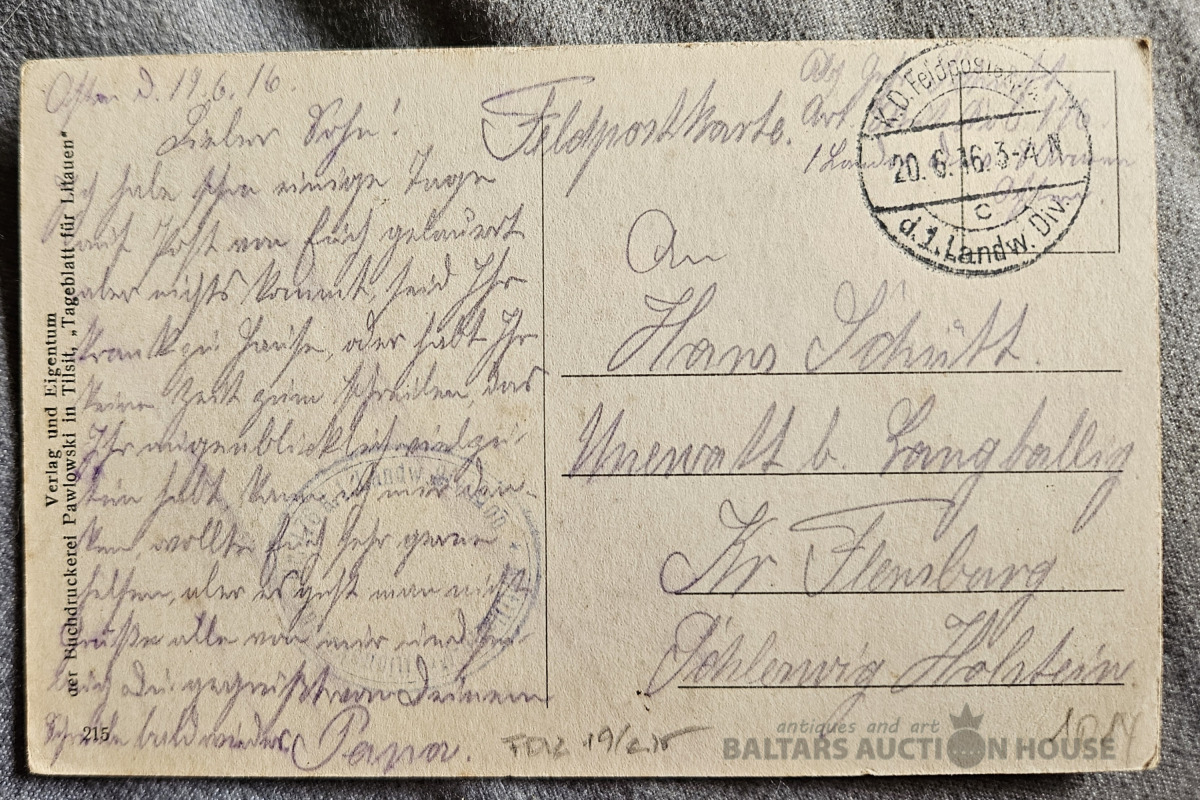 Osten d. 19.6.16.
Lieber Sohn!
Ich habe schon einige Tage
auf Post von Euch gelauert
aber nichts kommt, seid Ihr
krank zu Hause, oder habt Ihr
keine Zeit zum schreiben, das
Ihr augenblicklich viel zu
tun habt kann ich mir den-
ken, wollte Euch sehr gerne
helfen, aber es geht man nicht
Grüße alle von mir und sei
auch Du gegrüßt von Deinem
Schreibe bald wieder. Papa.
Feldpostkarte.
K.D. Feldpostexp.
20.6.16. 3-4 N
c
d. 1. Landw. Div.
An
Hans Schütt.
Unewatt b. Langballig
Kr Flensburg
Schleswig Holstein.
Verlag und Eigentum
der Buchdruckerei Pawlowski in Tilsit, „Tageblatt für Litauen"
215
antiques and art
BALTARS AUCTION HOUSE